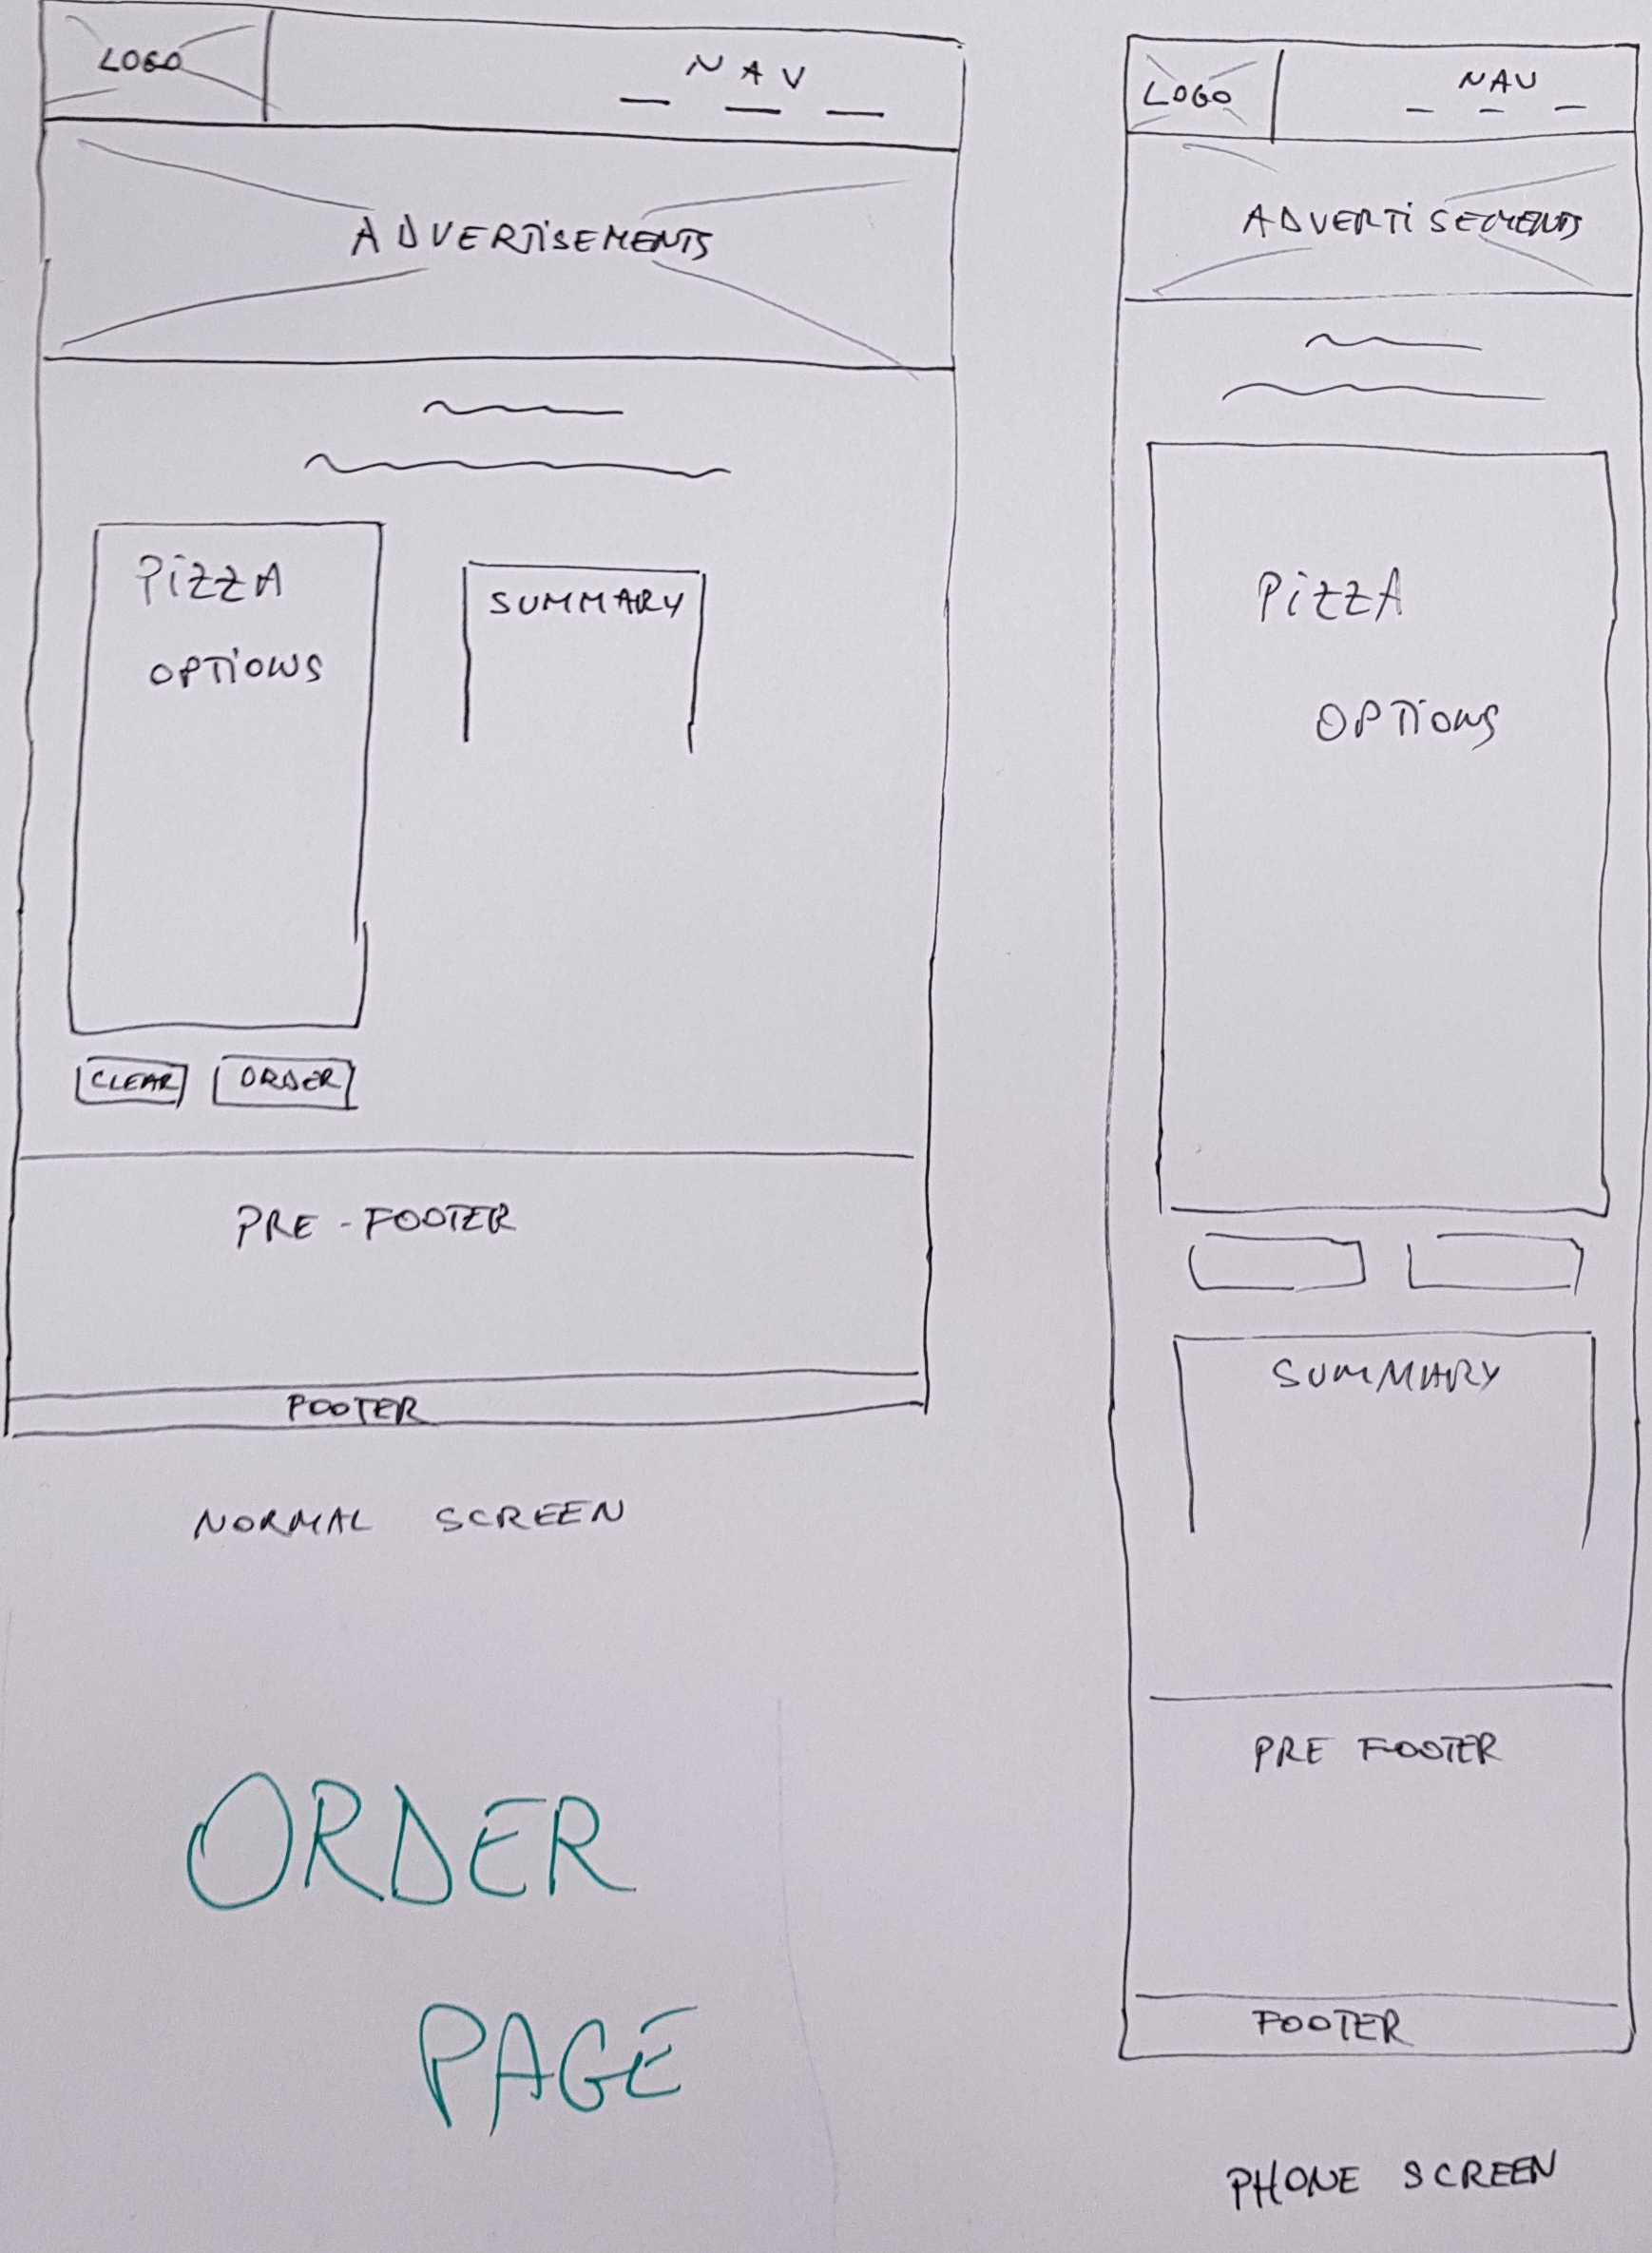 LOGO
NAV
ADVERTISEMENTS
PIZZA
OPTIONS
SUMMARY
CLEAR
ORDER
PRE-FOOTER
FOOTER
NORMAL SCREEN
LOGO
NAV
ADVERTISEMENTS
PIZZA
OPTIONS
SUMMARY
PRE FOOTER
FOOTER
PHONE SCREEN
ORDER
PAGE